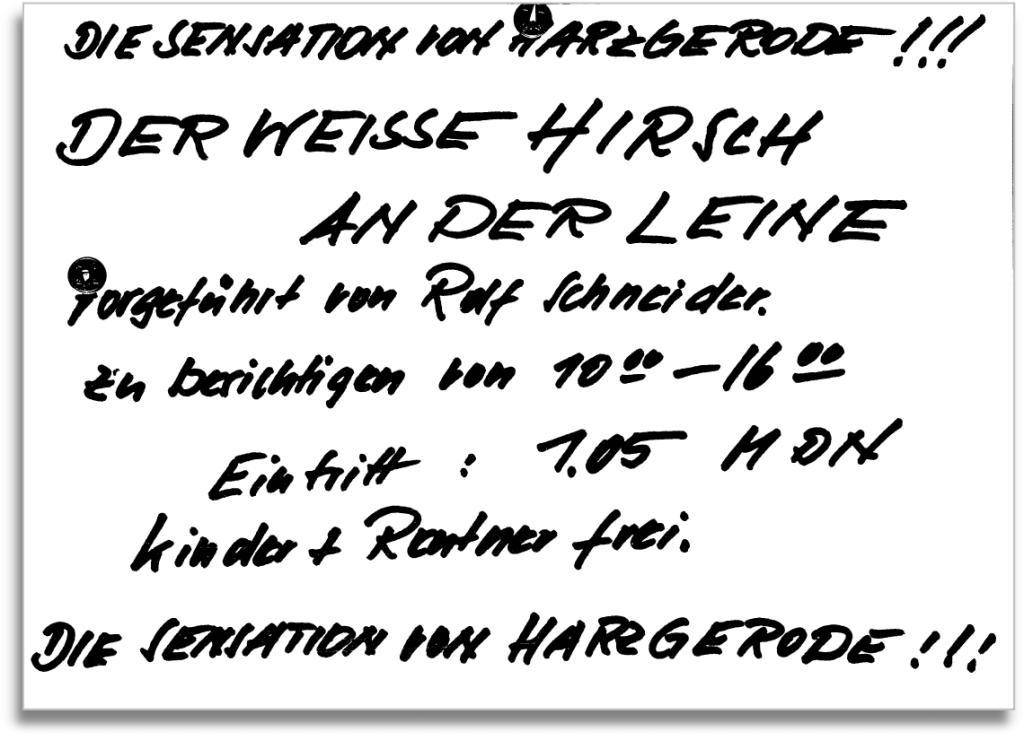 DIE SENSATION VON HARZGERODE !!!
DER WEISSE HIRSCH
AN DER LEINE
vorgeführt von Rolf Schneider.
zu berichtigen von 10⁰⁰ – 16⁰⁰
Eintritt : 1.05 MDN
Kinder + Rentner frei.
DIE SENSATION VON HARZGERODE !!!